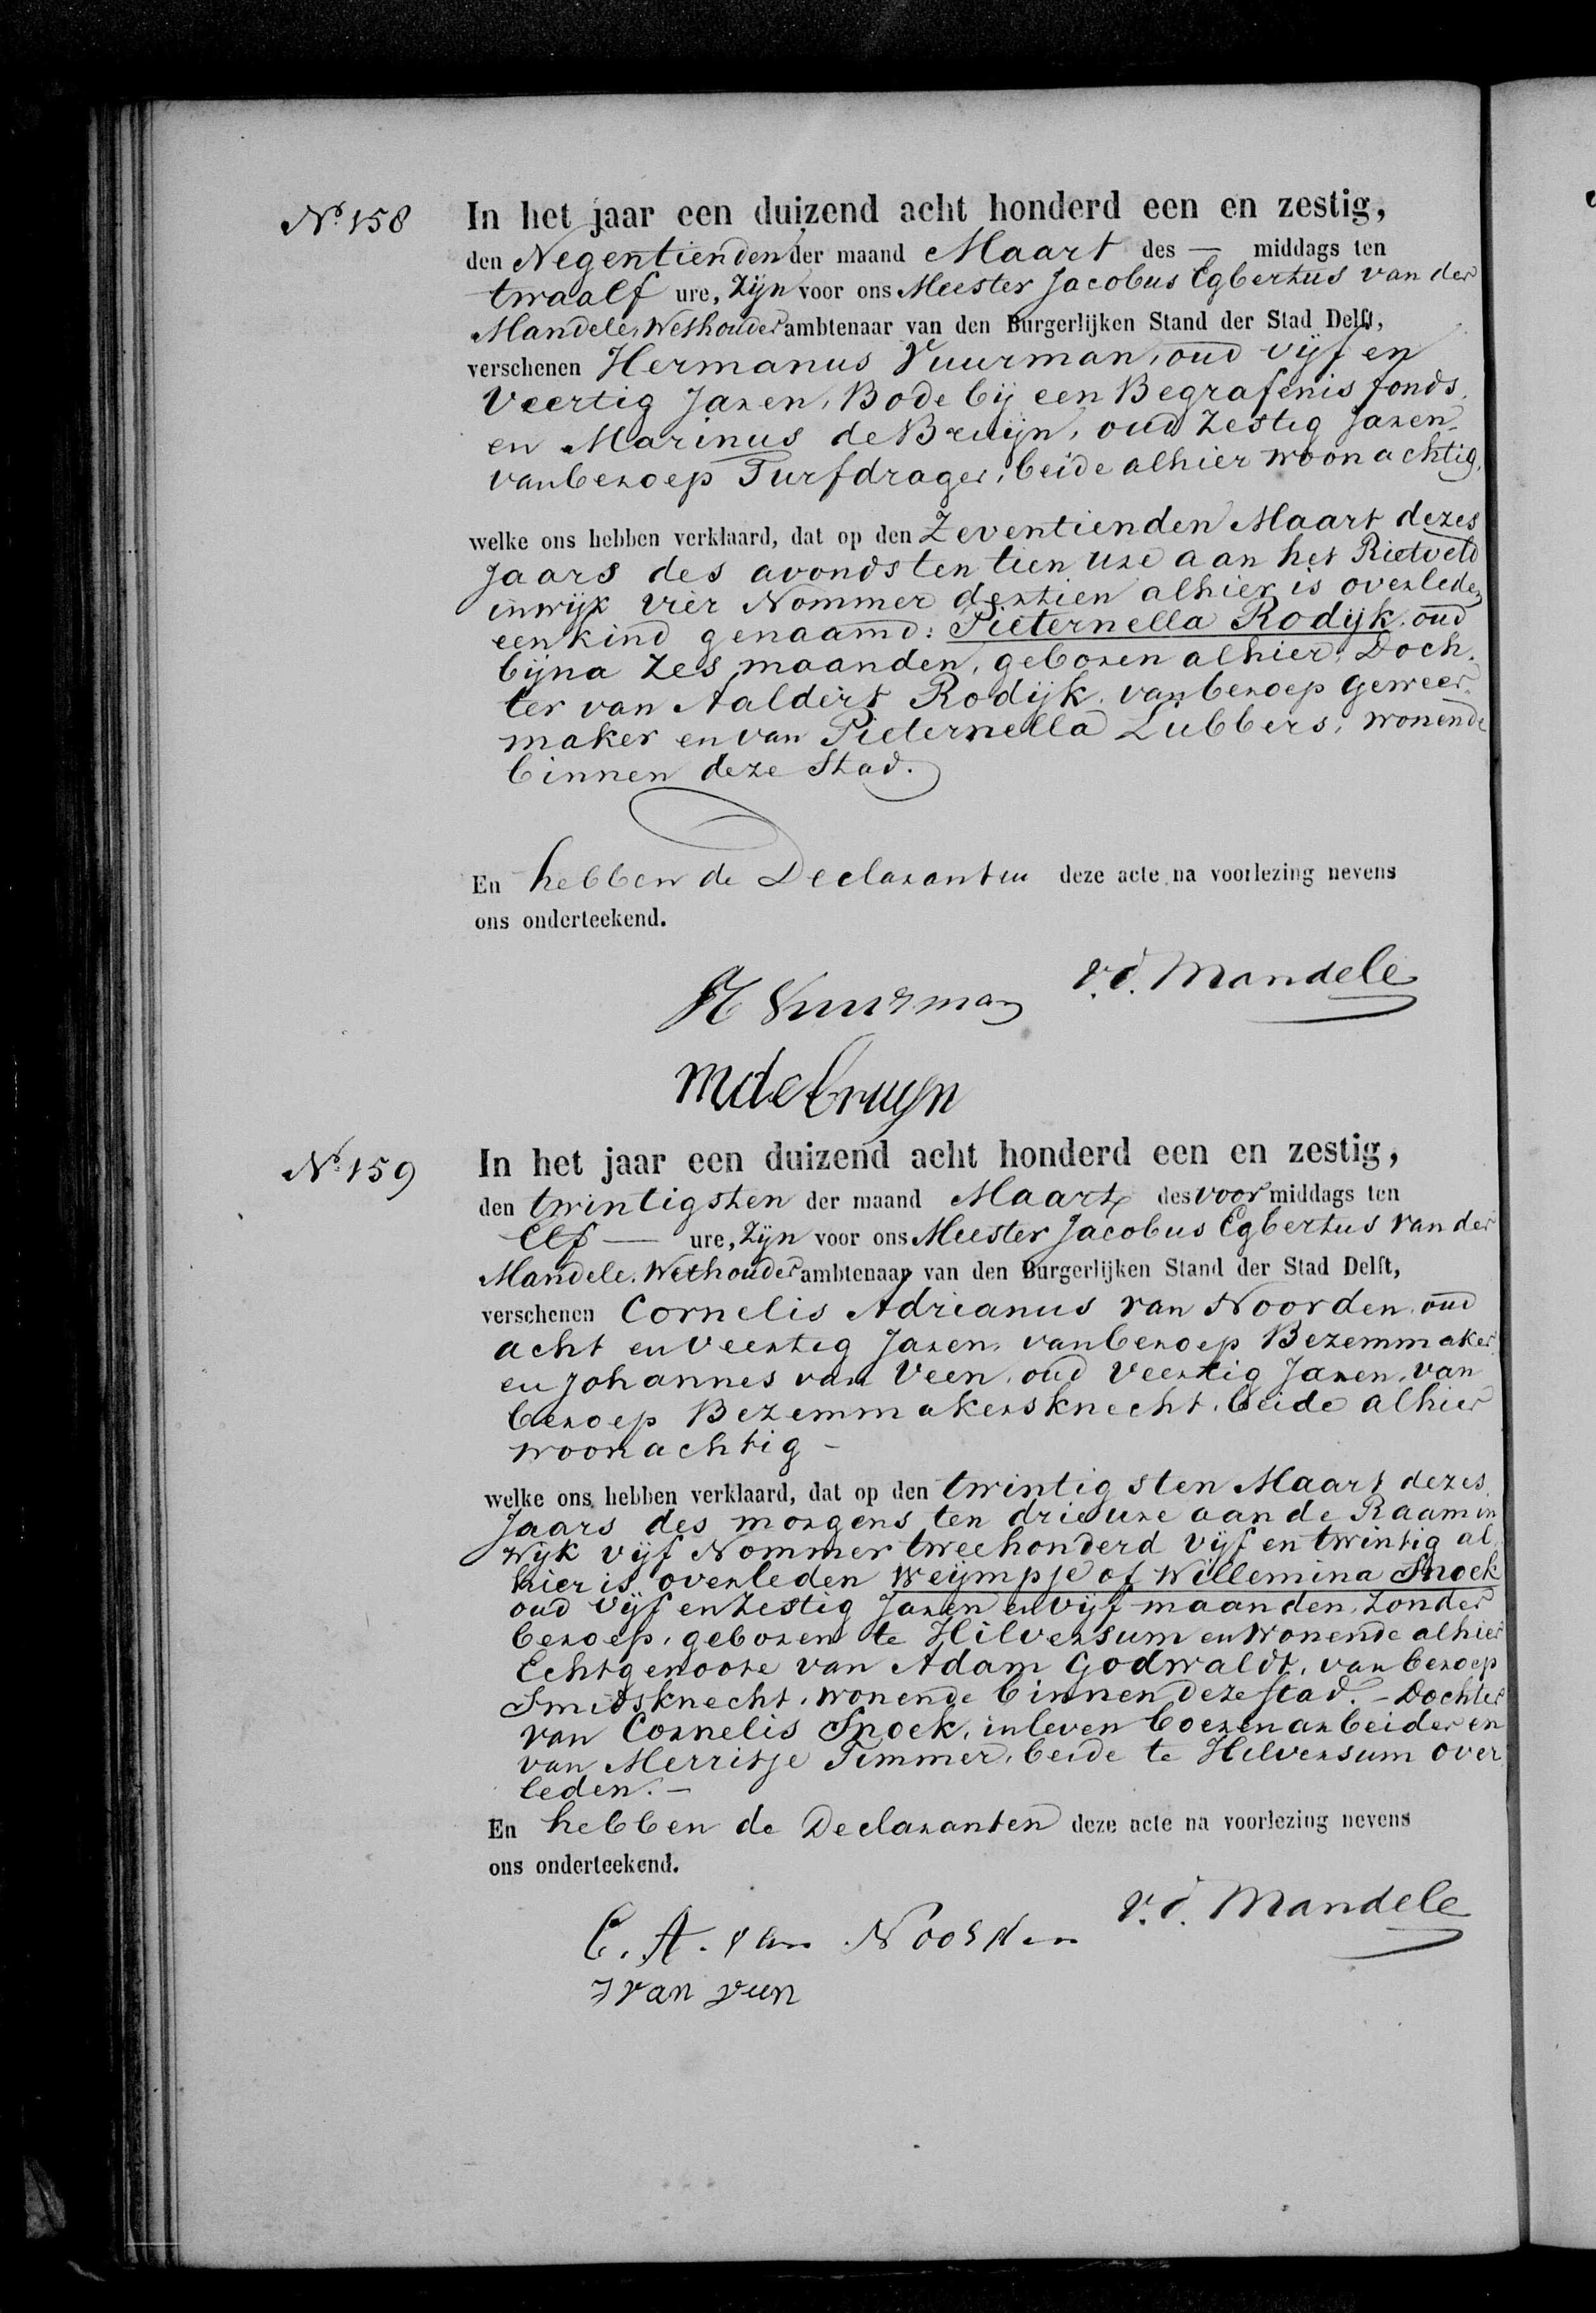 No. 158
In het jaar een duizend acht honderd een en zestig,
den Negentienden der maand Maart des — middags ten
twaalf ure, Zijn voor ons Meester Jacobus Egbertus van der
Mandele, Wethouder ambtenaar van den Burgerlijken Stand der Stad Delft,
verschenen Hermanus Vuurman, oud vijf en
Veertig Jaren, Bode bij een Begrafenis fonds,
en Marinus de Bruijn, oud Zestig Jaren,
van beroep Turfdrager, beide alhier woonachtig,
welke ons hebben verklaard, dat op den Zeventienden Maart dezes
Jaars des avonds ten tien ure aan het Rietveld
in wijk vier Nommer dertien alhier is overleden
een kind genaamd: Pieternella Rodijk, oud
bijna Zes maanden, geboren alhier, Doch-
ter van Aaldert Rodijk, van beroep geweer-
maker en van Pieternella Lubbers, wonende
binnen deze Stad.
En hebben de Declaranten deze acte na voorlezing nevens
ons onderteekend.
v. d. Mandele
H Vuurman
M de bruijn
No. 159
In het jaar een duizend acht honderd een en zestig,
den twintigsten der maand Maart des voor middags ten
Elf — ure, Zijn voor ons Meester Jacobus Egbertus van der
Mandele, Wethouder ambtenaar van den Burgerlijken Stand der Stad Delft,
verschenen Cornelis Adrianus van Noorden, oud
acht en Veertig Jaren, van beroep Bezemmaker
en Johannes van Veen, oud Veertig Jaren, van
beroep Bezemmakersknecht, beide alhier
woonachtig –
welke ons hebben verklaard, dat op den twintigsten Maart dezes
Jaars des morgens ten drie ure aan de Raam in
Wijk vijf Nommer tweehonderd vijf en twintig al-
hier is overleden Weijmpje of Willemina Snoek
oud vijf en Zestig Jaren en vijf maanden, Zonder
beroep, geboren te Hilversum en Wonende alhier
Echtgenoote van Adam Godwaldt, van beroep
Smidsknecht, wonende binnen deze stad. – Dochter
van Cornelis Snoek, in leven boerenarbeider en
van Merritje Timmer, beide te Hilversum over-
leden. –
En hebben de Declaranten deze acte na voorlezing nevens
ons onderteekend.
v. d. Mandele
C. A. van Noorden
J van veen